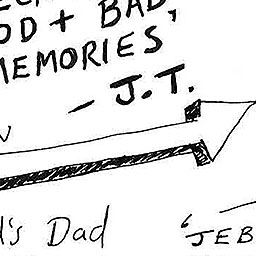 OD + BAD,
MEMORIES'
- J.T.
's Dad
'JEB